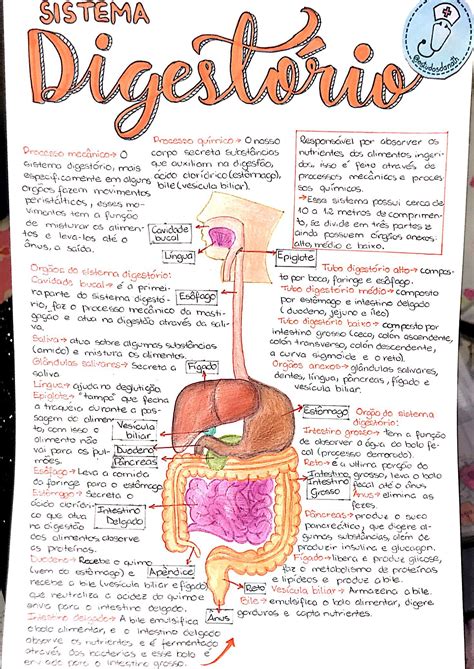 SISTEMA
Digestório
@estudosdanath
Processo mecânico → O
sistema digestório, mais
especificamente em alguns
órgãos fazem movimentos
peristálticos, esses mo-
vimentos tem a função
de misturar os alimen-
tos e leva-los até o
ânus, a saída.
Processo químico → O nosso
corpo secreta substâncias
que auxiliam na digestão,
ácido clorídrico (estômago),
bile (vesícula biliar).
Responsável por absorver os
nutrientes dos alimentos ingeri-
dos, isso é feito através de
processos mecânicos e proces-
sos químicos.
→ Esse sistema possui cerca de
10 a 12 metros de comprimen-
to, se divide em três partes e
ainda possuem órgãos anexos.
alto, médio e baixo.
Cavidade
bucal
Língua
Epiglote
Esôfago
Fígado
Vesícula
biliar
Duodeno
Pâncreas
Estômago
Intestino
Delgado
Intestino
Grosso
Apêndice
Reto
Ânus
Tubo digestório alto → compos-
to por boca, faringe e esôfago.
Tubo digestório médio → composto
por estômago e intestino delgado
(duodeno, jejuno e íleo)
Tubo digestório baixo → composto por
intestino grosso (ceco, cólon ascendente,
colón transverso, colón descendente,
a curva sigmoide e o reto).
Orgãos anexos → glândulas salivares,
dentes, língua, pâncreas, fígado e
vesícula biliar.
Orgãos do sistema digestório:
Cavidade bucal → é a primei-
ra parte do sistema digestó-
rio, faz o processo mecânico da masti-
gação e atua na digestão através da sali-
va.
Saliva → atua sobre algumas substâncias
(amido) e mistura os alimentos.
Glândulas salivares → Secreta a
saliva
Língua → ajuda na deglutição
Epiglote → "tampa" que fecha
a traqueia durante a pas-
sagem do alimen-
to, com isso o
alimento não
vai para os pul-
mões.
Esôfago → Leva a comida
da faringe para o estômago
Estômago → Secreta o
ácido clorídri-
co que atua
na digestão
dos alimentos
as proteínas.
Duodeno → Recebe o quimo
(vem do estômago) e
recebe a bile (vesícula biliar e fígado)
que neutraliza a acidez do quimo e
envia para o intestino delgado.
Intestino delgado → A bile emulsifica
o bolo alimentar, e o intestino delgado
absorve os nutrientes e é fermentado
através das bactérias e esse bolo é
enviado para o intestino grosso.
Orgão do sistema
digestório:
Intestino grosso → tem a função
de absorver a água do bolo fe-
cal (processo demorado).
Reto → é a última porção do
intestino grosso, leva o bolo
fecal até o ânus
Ânus → elimina as
fezes.
Pâncreas → produz o suco
pancreático, que digere al-
gumas substâncias, além de
produzir insulina e glucagon.
Fígado → libera e produz glicose,
faz o metabolismo de proteínas
e lipídeos e produz a bile.
Vesícula biliar → Armazena a bile.
Bile → emulsifica o bolo alimentar, digere
gorduras e capta nutrientes.